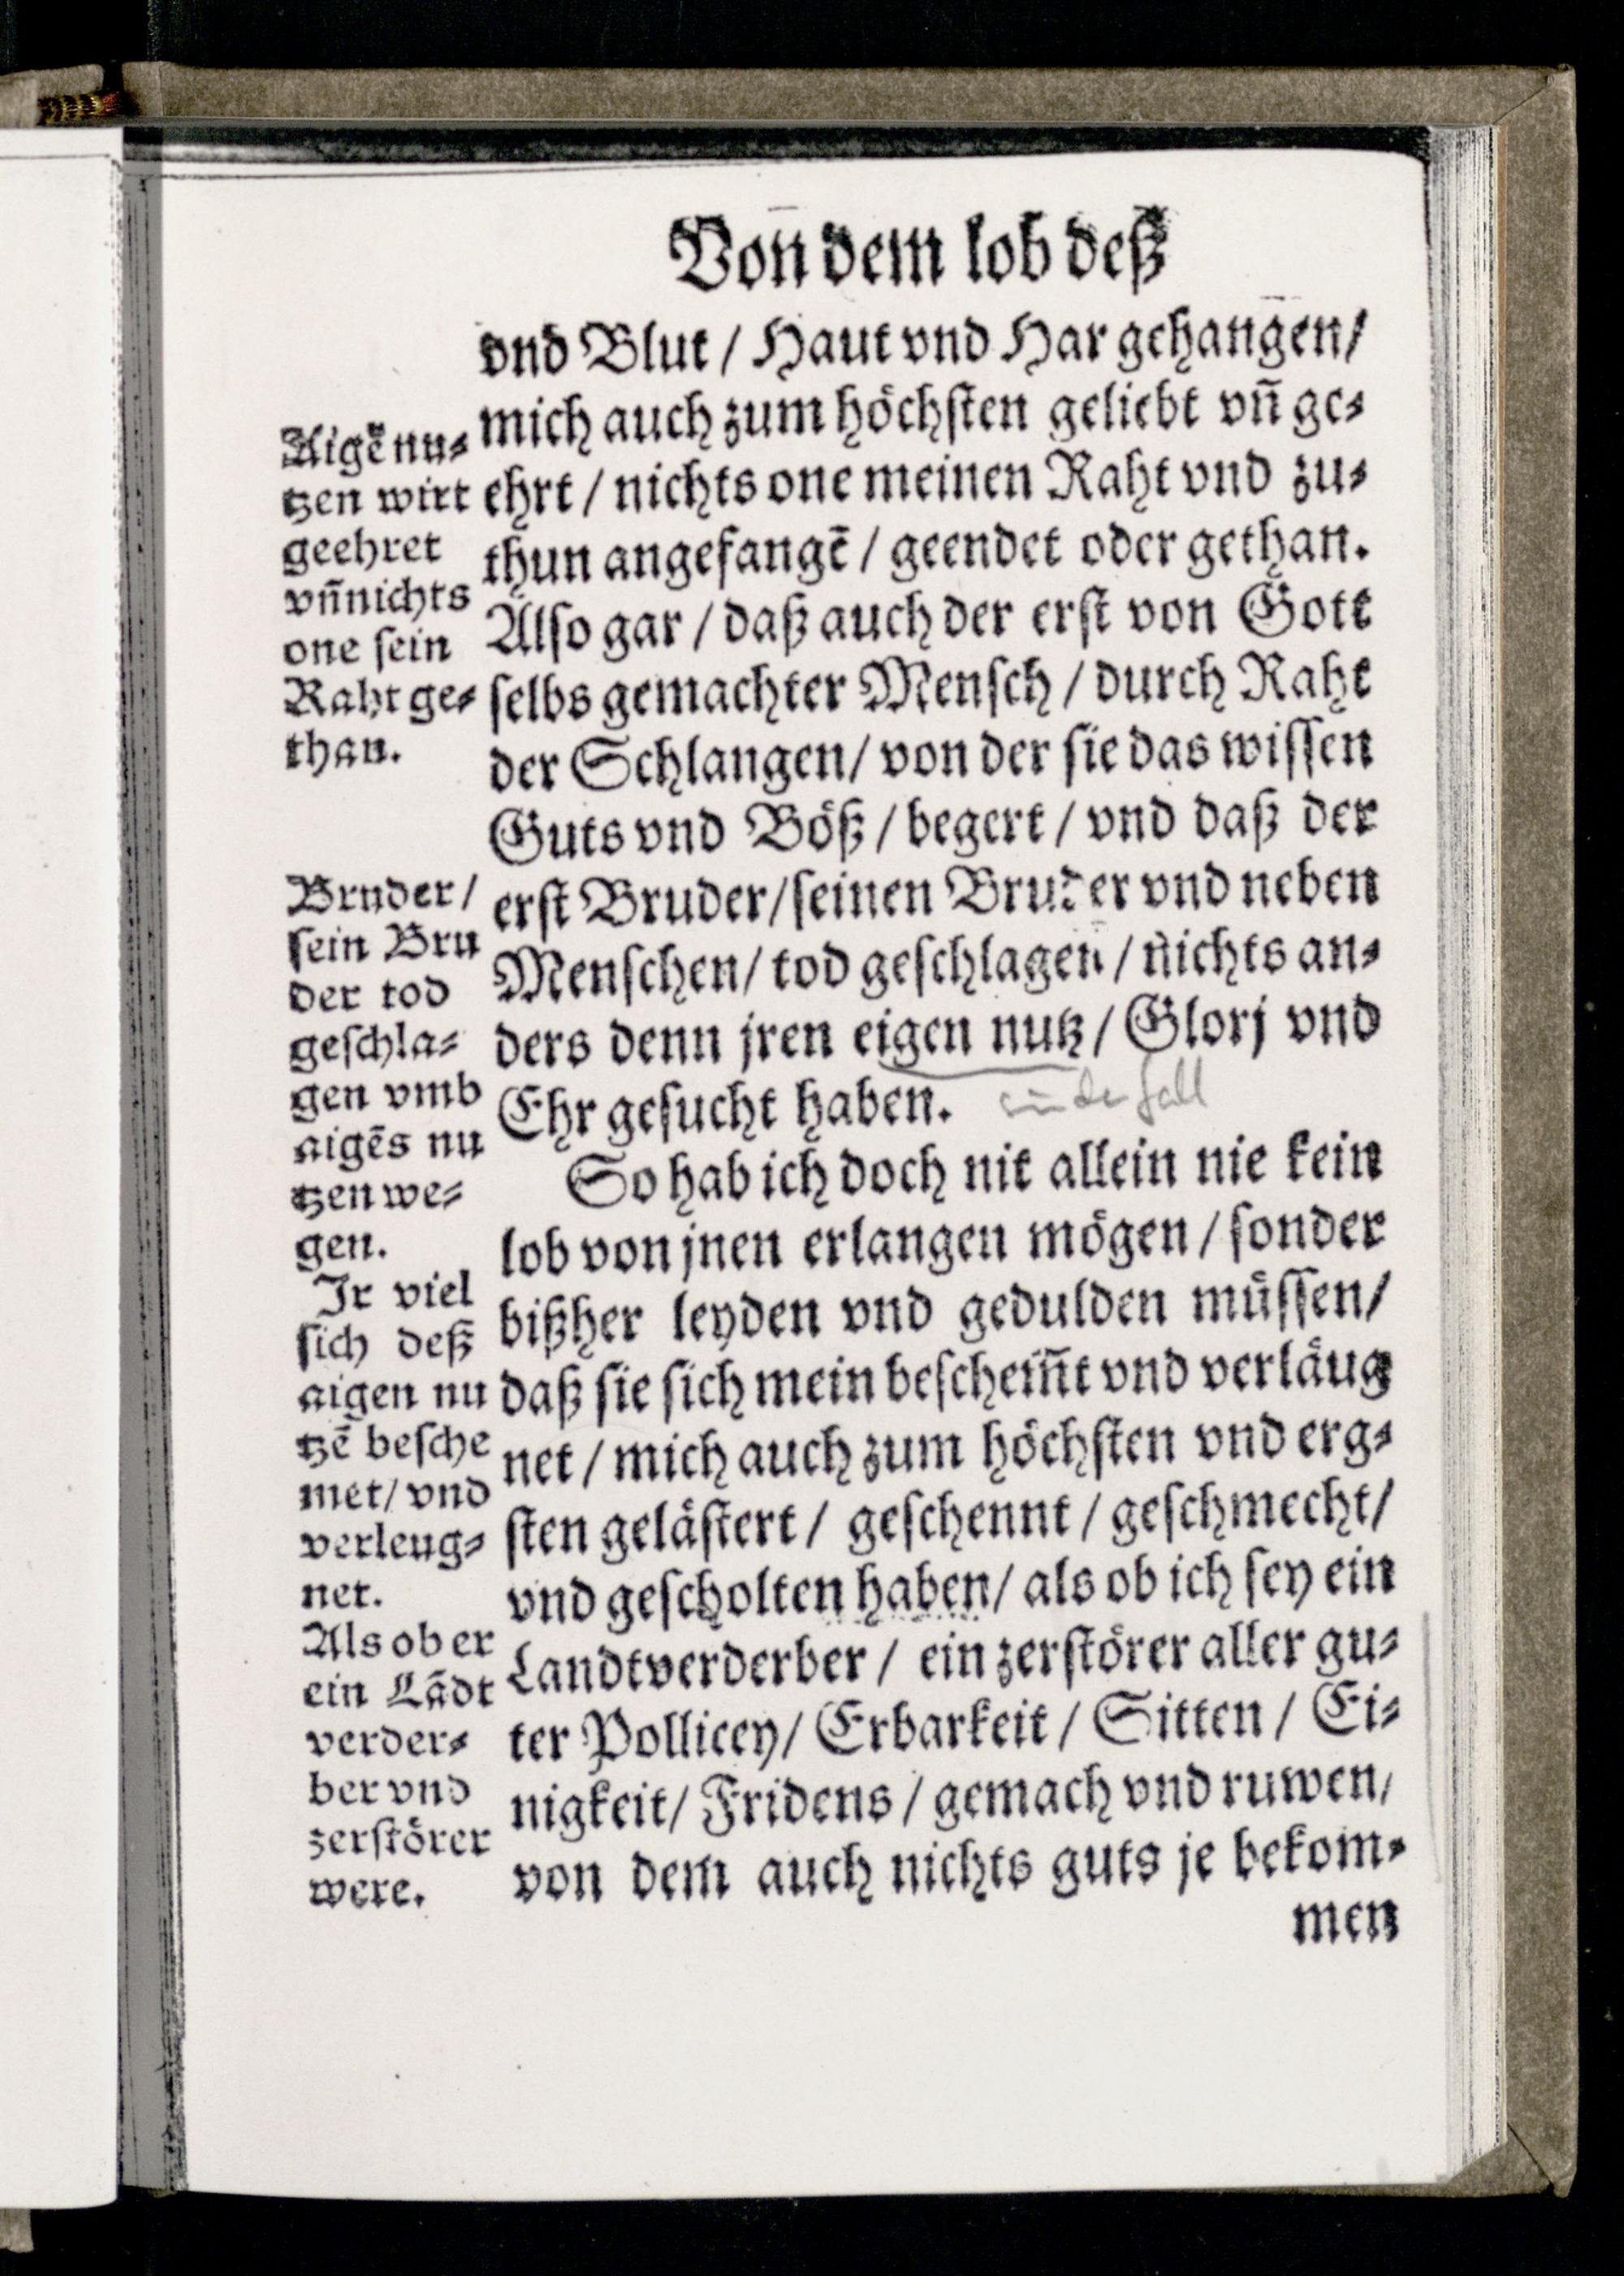 Von dem lob deß
vnd Blut / Haut vnd Har gehangen /
mich auch zum höchsten geliebt vn̄ ge⸗
ehrt / nichts one meinen Raht vnd zu⸗
thun angefangē / geendet oder gethan.
Also gar / daß auch der erst von Gott
selbs gemachter Mensch / durch Raht
der Schlangen / von der sie das wissen
Guts vnd Böß / begert / vnd daß der
erst Bruder / seinen Bruder vnd neben
Menschen / tod geschlagen / nichts an⸗
ders denn jren eigen nutz / Glorj vnd
Ehr gesucht haben.
So hab ich doch nit allein nie kein
lob von jnen erlangen mögen / sonder
bißher leyden vnd gedulden müssen /
daß sie sich mein beschem̄t vnd verläug
net / mich auch zum höchsten vnd erg⸗
sten gelästert / geschennt / geschmecht /
vnd gescholten haben / als ob ich sey ein
Landtverderber / ein zerstörer aller gu⸗
ter Pollicey / Erbarkeit / Sitten / Ei⸗
nigkeit / Fridens / gemach vnd ruwen /
von dem auch nichts guts je bekom⸗
men
Aigē nu⸗
tzen wirt
geehret
vn̄ nichts
one sein
Raht ge⸗
than.
Bruder /
sein Bru
der tod
geschla⸗
gen vmb
aigēs nu
tzen we⸗
gen.
Jr viel
sich deß
aigen nu
tzē besche
met / vnd
verleug⸗
net.
Als ob er
ein Lādt
verder⸗
ber vnd
zerstörer
were.